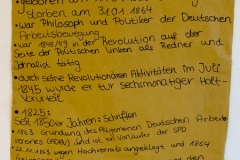 • geboren am
storben am 31.01.1864
• war Philosoph und Politiker der Deutschen
Arbeitsbewegung
• war 1848/49 in der Revolution auf der
Seite der Politischen Linken als Redner und
Jornalist tätig
• durch seine Revolutionären Aktivitäten im Juli
1845 wurde er zur sechsmonatiger Haft-
verurteilt
• 1825:
Seit 1850er Jahren: Schriften
• 1863 Gründung des Allgemeinen Deutschen Arbeite
vereines (ADAV) und ist ein Vorläufer der SPD
1863 wegen Hochverrats angeklagt und 1864